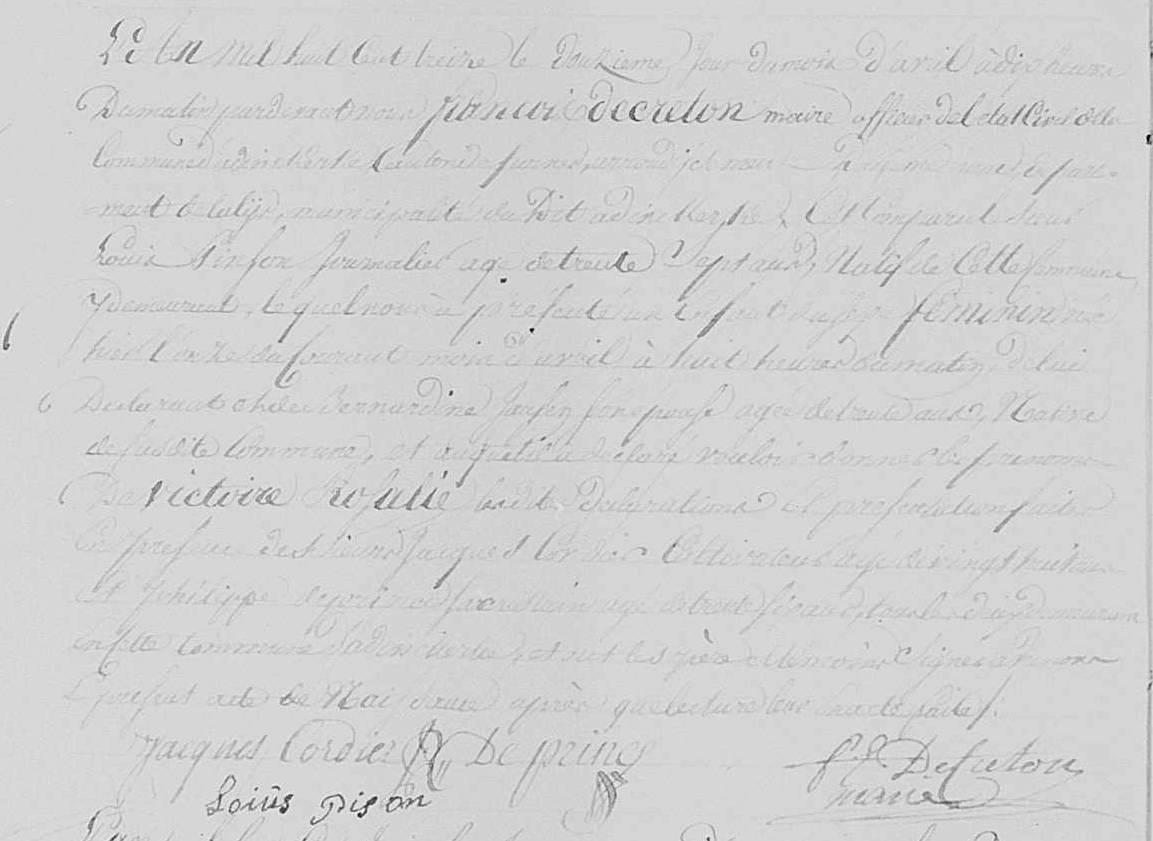 L'An mil huit Cent treize le douzieme Jour du mois d'avril à dix heures
Du matin pardevant nous francois decreton maire officier del'etat Civil dela
Commune d'adinkerke Canton de furnes, arrondissement departe-
ment dela lijs, municipalité du dit adinkerke, Est Comparut sieur
Louis Pinson Journalier agé de trente sept ans, Natif de Cette Commune
y demeurant, le quel nous à présenté un enfant du sexe féminin né
hier l'onze du Courant mois d'avril à huit heures du matin, de lui
Declarant et de Bernardine Jansen son epouse agée de trente ans, Native
de susdite Commune, et auquel il a declaré vouloir donner les prenoms
De Victoire Rosalie lesdites declarations et presentation faites
En presence des sieurs Jacques Cordier Cultivateur agé de vingt huit ans
et philippe deprince sacristain agé de trente six ans, tous les deux demeurant
en cette Commune d'adinkerke, et ont les père et temoins signés avec nous
le present acte de Naissance après que lecture leur en a eté faite /.
Jacques Cordier De prince
f: J: Decreton
Loiûs Pison
maire